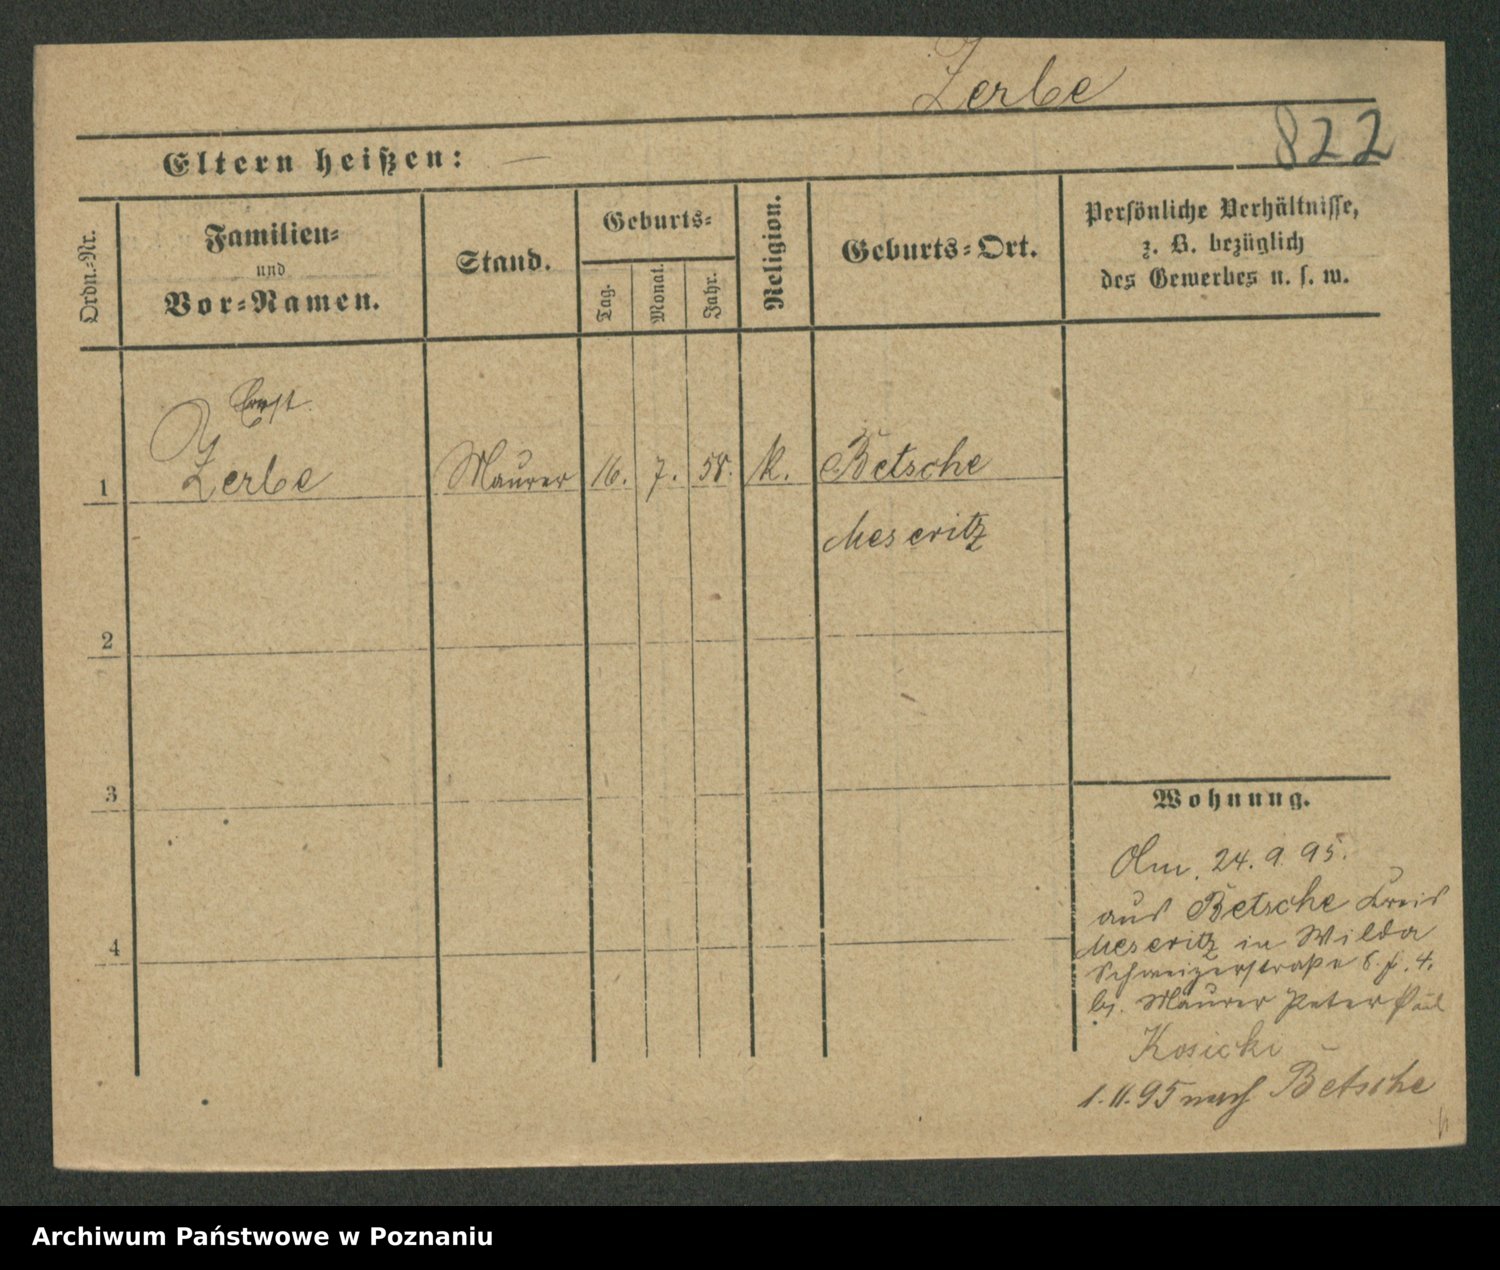 Zerbe
822
Eltern heißen: —
Ordn.-Nr.
Familien-
und
Vor-Namen.
Stand.
Geburts-
Tag.
Monat.
Jahr.
Religion.
Geburts-Ort.
Persönliche Verhältnisse,
z. B. bezüglich
des Gewerbes u. s. w.
Ernst.
1 Zerbe Maurer 16. 7. 58. k. Betsche
Meseritz
2
3
Wohnung.
24. 9. 95.
aus Betsche Kreis
4
Meseritz in Wilda
Schweizerstraße
bj. Maurer Peter Paul
Kosicki
1. 11. 95 nach Betsche
Archiwum Państwowe w Poznaniu